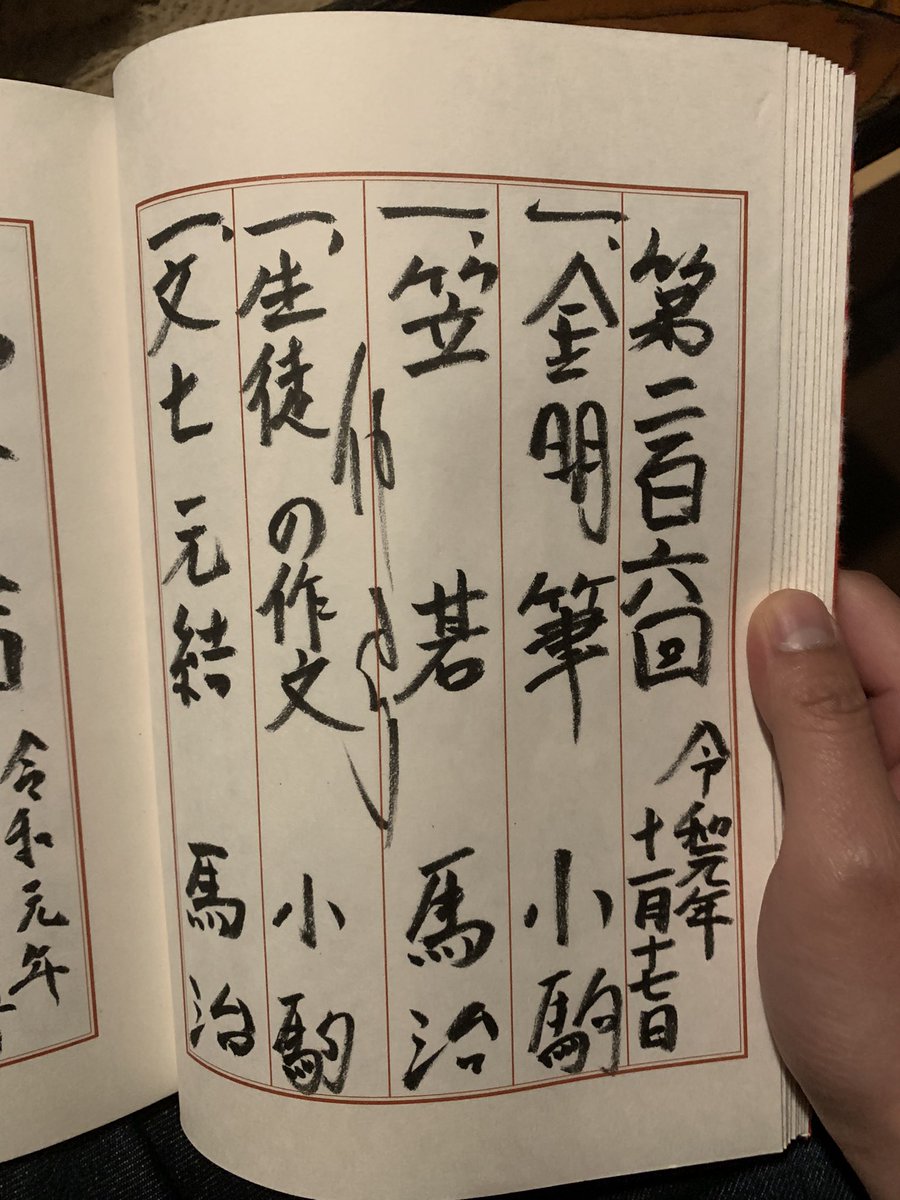 第二百六回
令和元年
十一月十七日
一、金明筆 小駒
一、笠碁 馬治
一、生徒の作文 小駒
一、文七元結 馬治
令和元年